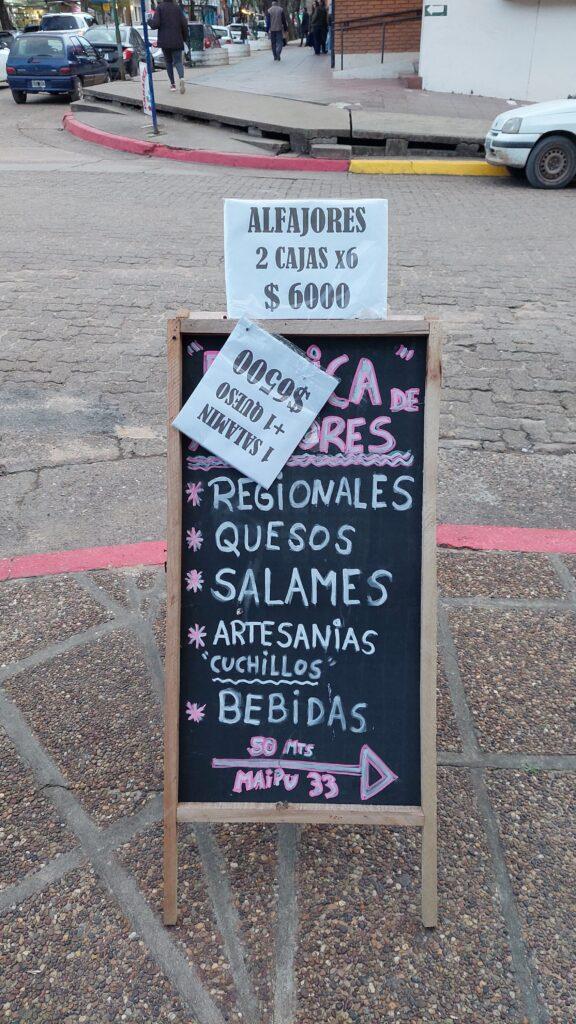 ALFAJORES
2 CAJAS x6
$ 6000
1 SALAMIN
+1 QUESO
$6500
DE
* REGIONALES
* QUESOS
* SALAMES
* ARTESANIAS
"CUCHILLOS"
* BEBIDAS
50 MTS
MAIPU 33